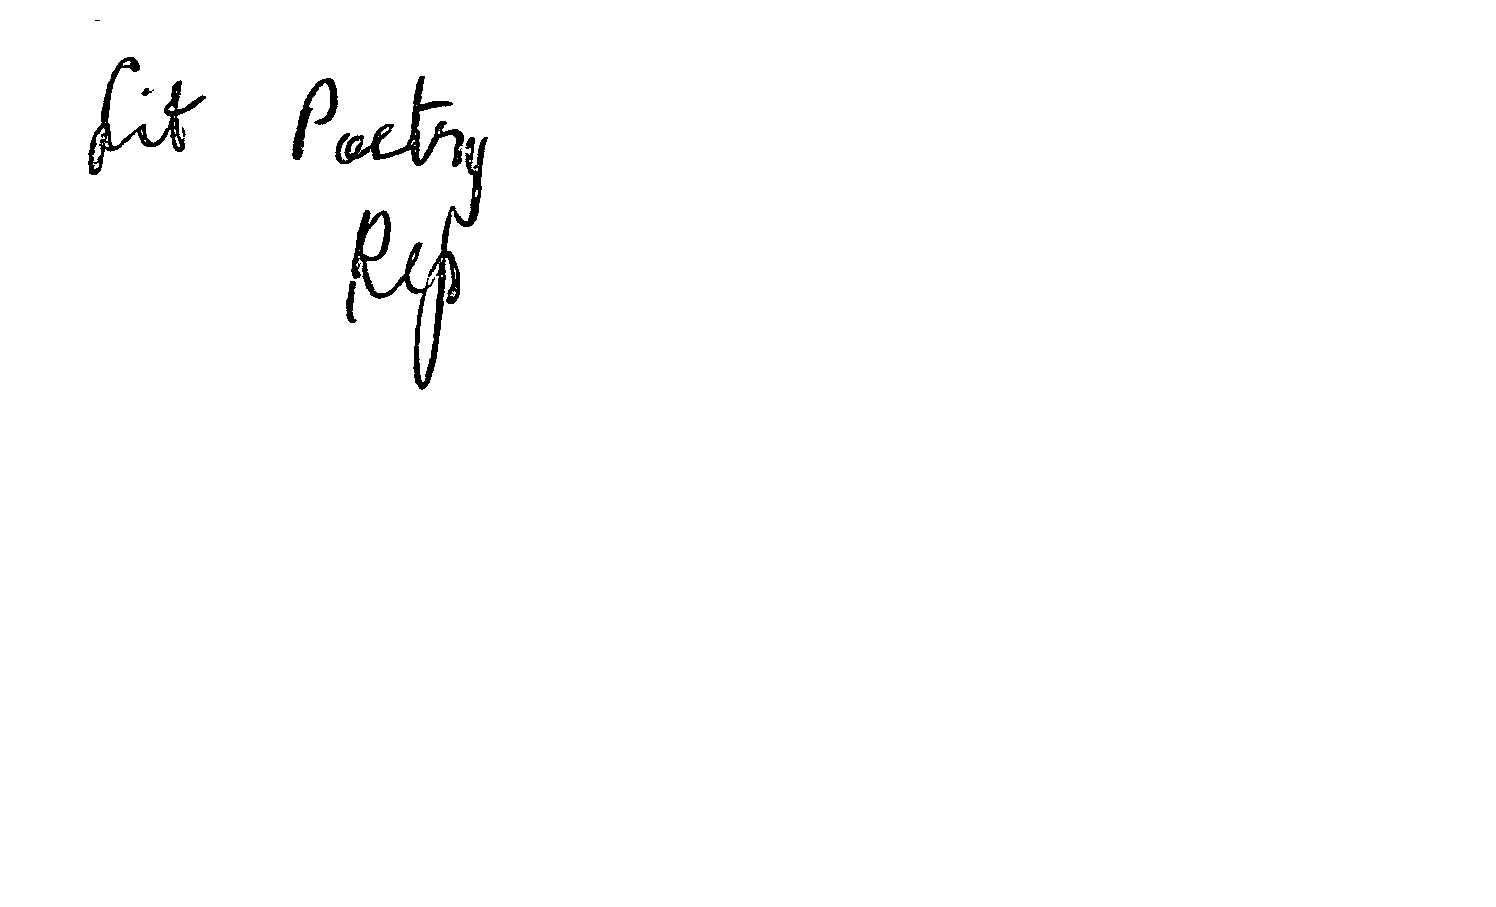 Lit Poetry
Rep